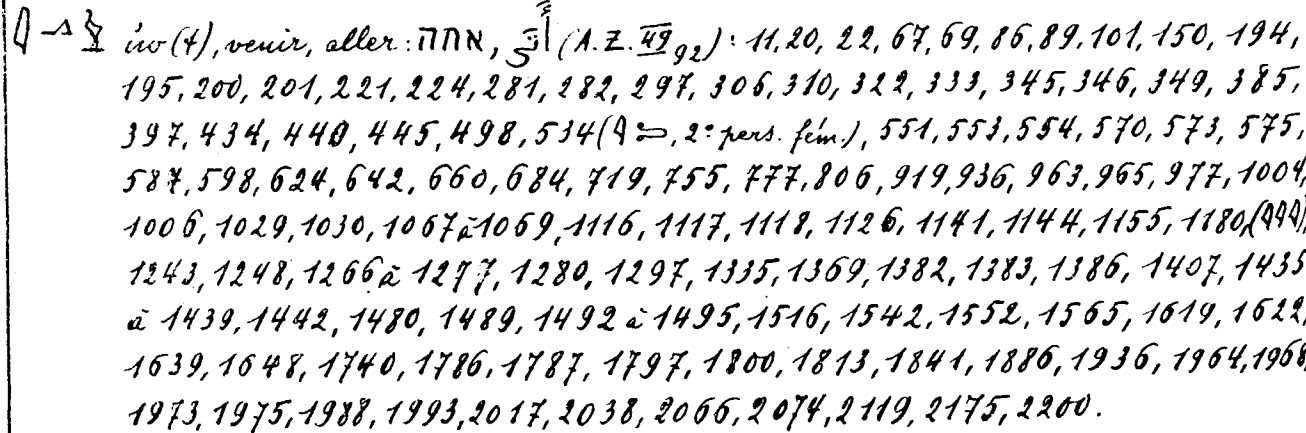 𓇋𓂻𓅱 iw (t), venir, aller: אתה, أتى (A.Z. 49 92): 11, 20, 22, 67, 69, 86, 89, 101, 150, 194,
195, 200, 201, 221, 224, 281, 282, 297, 306, 310, 322, 333, 345, 346, 349, 385,
397, 434, 440, 445, 498, 534 (2e pers. fém.), 551, 553, 554, 570, 573, 575,
587, 598, 624, 642, 660, 684, 719, 755, 777, 806, 919, 936, 963, 965, 977, 1004,
1006, 1029, 1030, 1067 à 1069, 1116, 1117, 1118, 1126, 1141, 1144, 1155, 1180 (𓇋𓇋𓇋),
1243, 1248, 1266 à 1277, 1280, 1297, 1335, 1369, 1382, 1383, 1386, 1407, 1435
à 1439, 1442, 1480, 1489, 1492 à 1495, 1516, 1542, 1552, 1565, 1619, 1622,
1639, 1648, 1740, 1786, 1787, 1797, 1800, 1813, 1841, 1886, 1936, 1964, 1968,
1973, 1975, 1988, 1993, 2017, 2038, 2066, 2074, 2119, 2175, 2200.